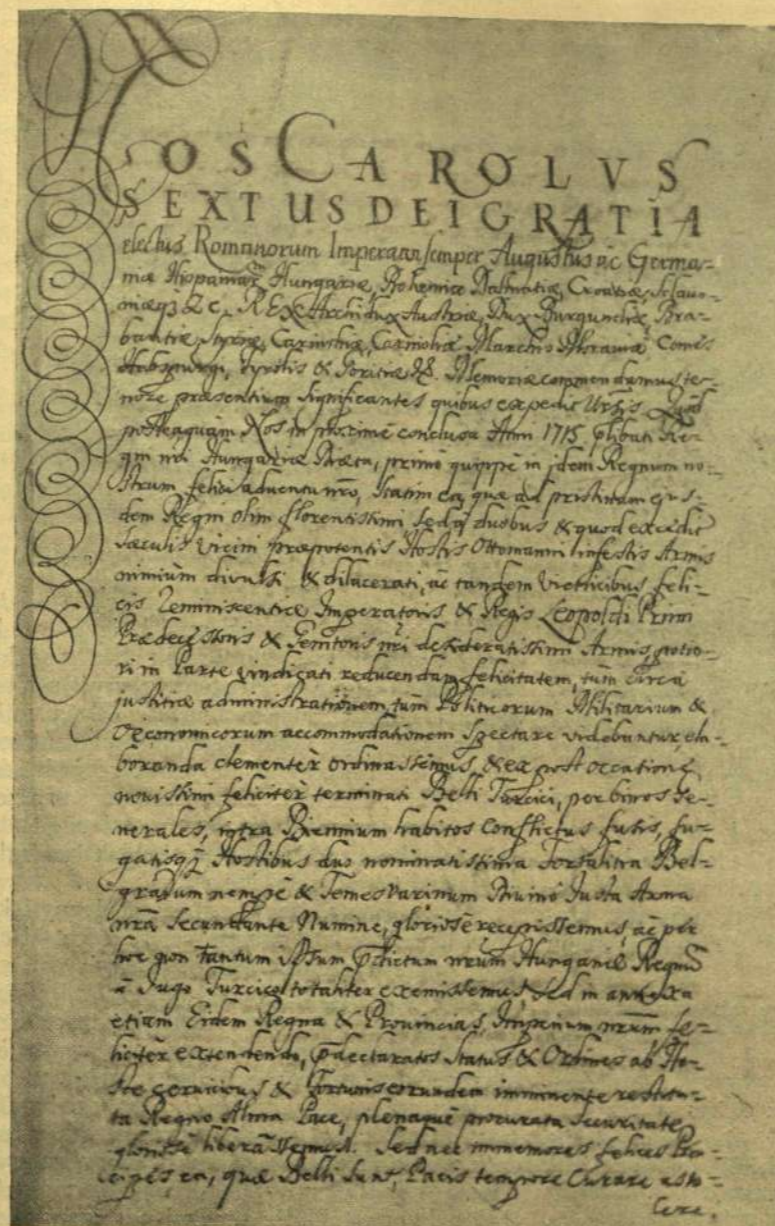 NOS CAROLVS
SEXTUS DEI GRATIA
electus Romanorum Imperator semper Augustus ac Germa-
niæ Hispaniar̄, Hungariæ, Bohemiæ Dalmatiæ, Croatiæ, Sclavo-
niæq3 &c. REX Archidux Austriæ, Dux Burgundiæ, Bra-
bantiæ, Styriæ, Carinthiæ, Carnioliæ Marchio Moraviæ Comes
Habspurgi, Tyrolis & Goritiæ &c. Memoriæ commendamus te-
nore præsentium significantes quibus expedit Ursis Quod
posteaquam Nos in proxime conclusa Anni 1715
Hungariæ Diæta, primo quippe in idem Regnum no-
strum felici adventu nro, statim ea, quæ ad pristinam ejus-
dem Regni olim florentissimi sed à duobus & quod excedit
sæculis vicini præpotentis Hostis Ottomanni infestis Armis
nimium divulsi & dilacerati, ac tandem Victricibus feli-
cis Reminiscentiæ Imperatoris & Regis Leopoldi Primi
Prædecessoris & Genitoris nri desideratissimi Armis potio-
ri in Parte vindicati reducendam felicitatem, tum circa
justitiæ administrationem, tum Politicorum Militarium &
Oeconomicorum accommodationem spectare videbantur, ela-
boranda clementer ordinassemus, & ex post occatione
novissimi feliciter terminati Belli Turcici, per binos Ge-
nerales, intra Biennium habitos Conflictus fusis, fu-
gatisq3 Hostibus duo nominatissima Fortalitia Bel-
gradum nempe & Temesvarinum Divino Justa Arma
nra secundante Numine, gloriose recepissemus, ac per
hoc non tantum ipsum p̄dictum nrum Hungariæ Regnū
à Jugo Turcico totaliter exemissemus, sed in annexa
etiam Eidem Regna & Provincias, Imperium nrum fe-
liciter extendendo, p̄declaratos Status & Ordines ab Ho-
ste cervicibus & Fortunis eorundem imminente restitu-
ta Regno Alma Pace, plenaque procurata Securitate
gloriose liberassemus. Sed nec immemores felices Prin-
cipes ea, quæ Belli sunt, Pacis tempore Curare asso-